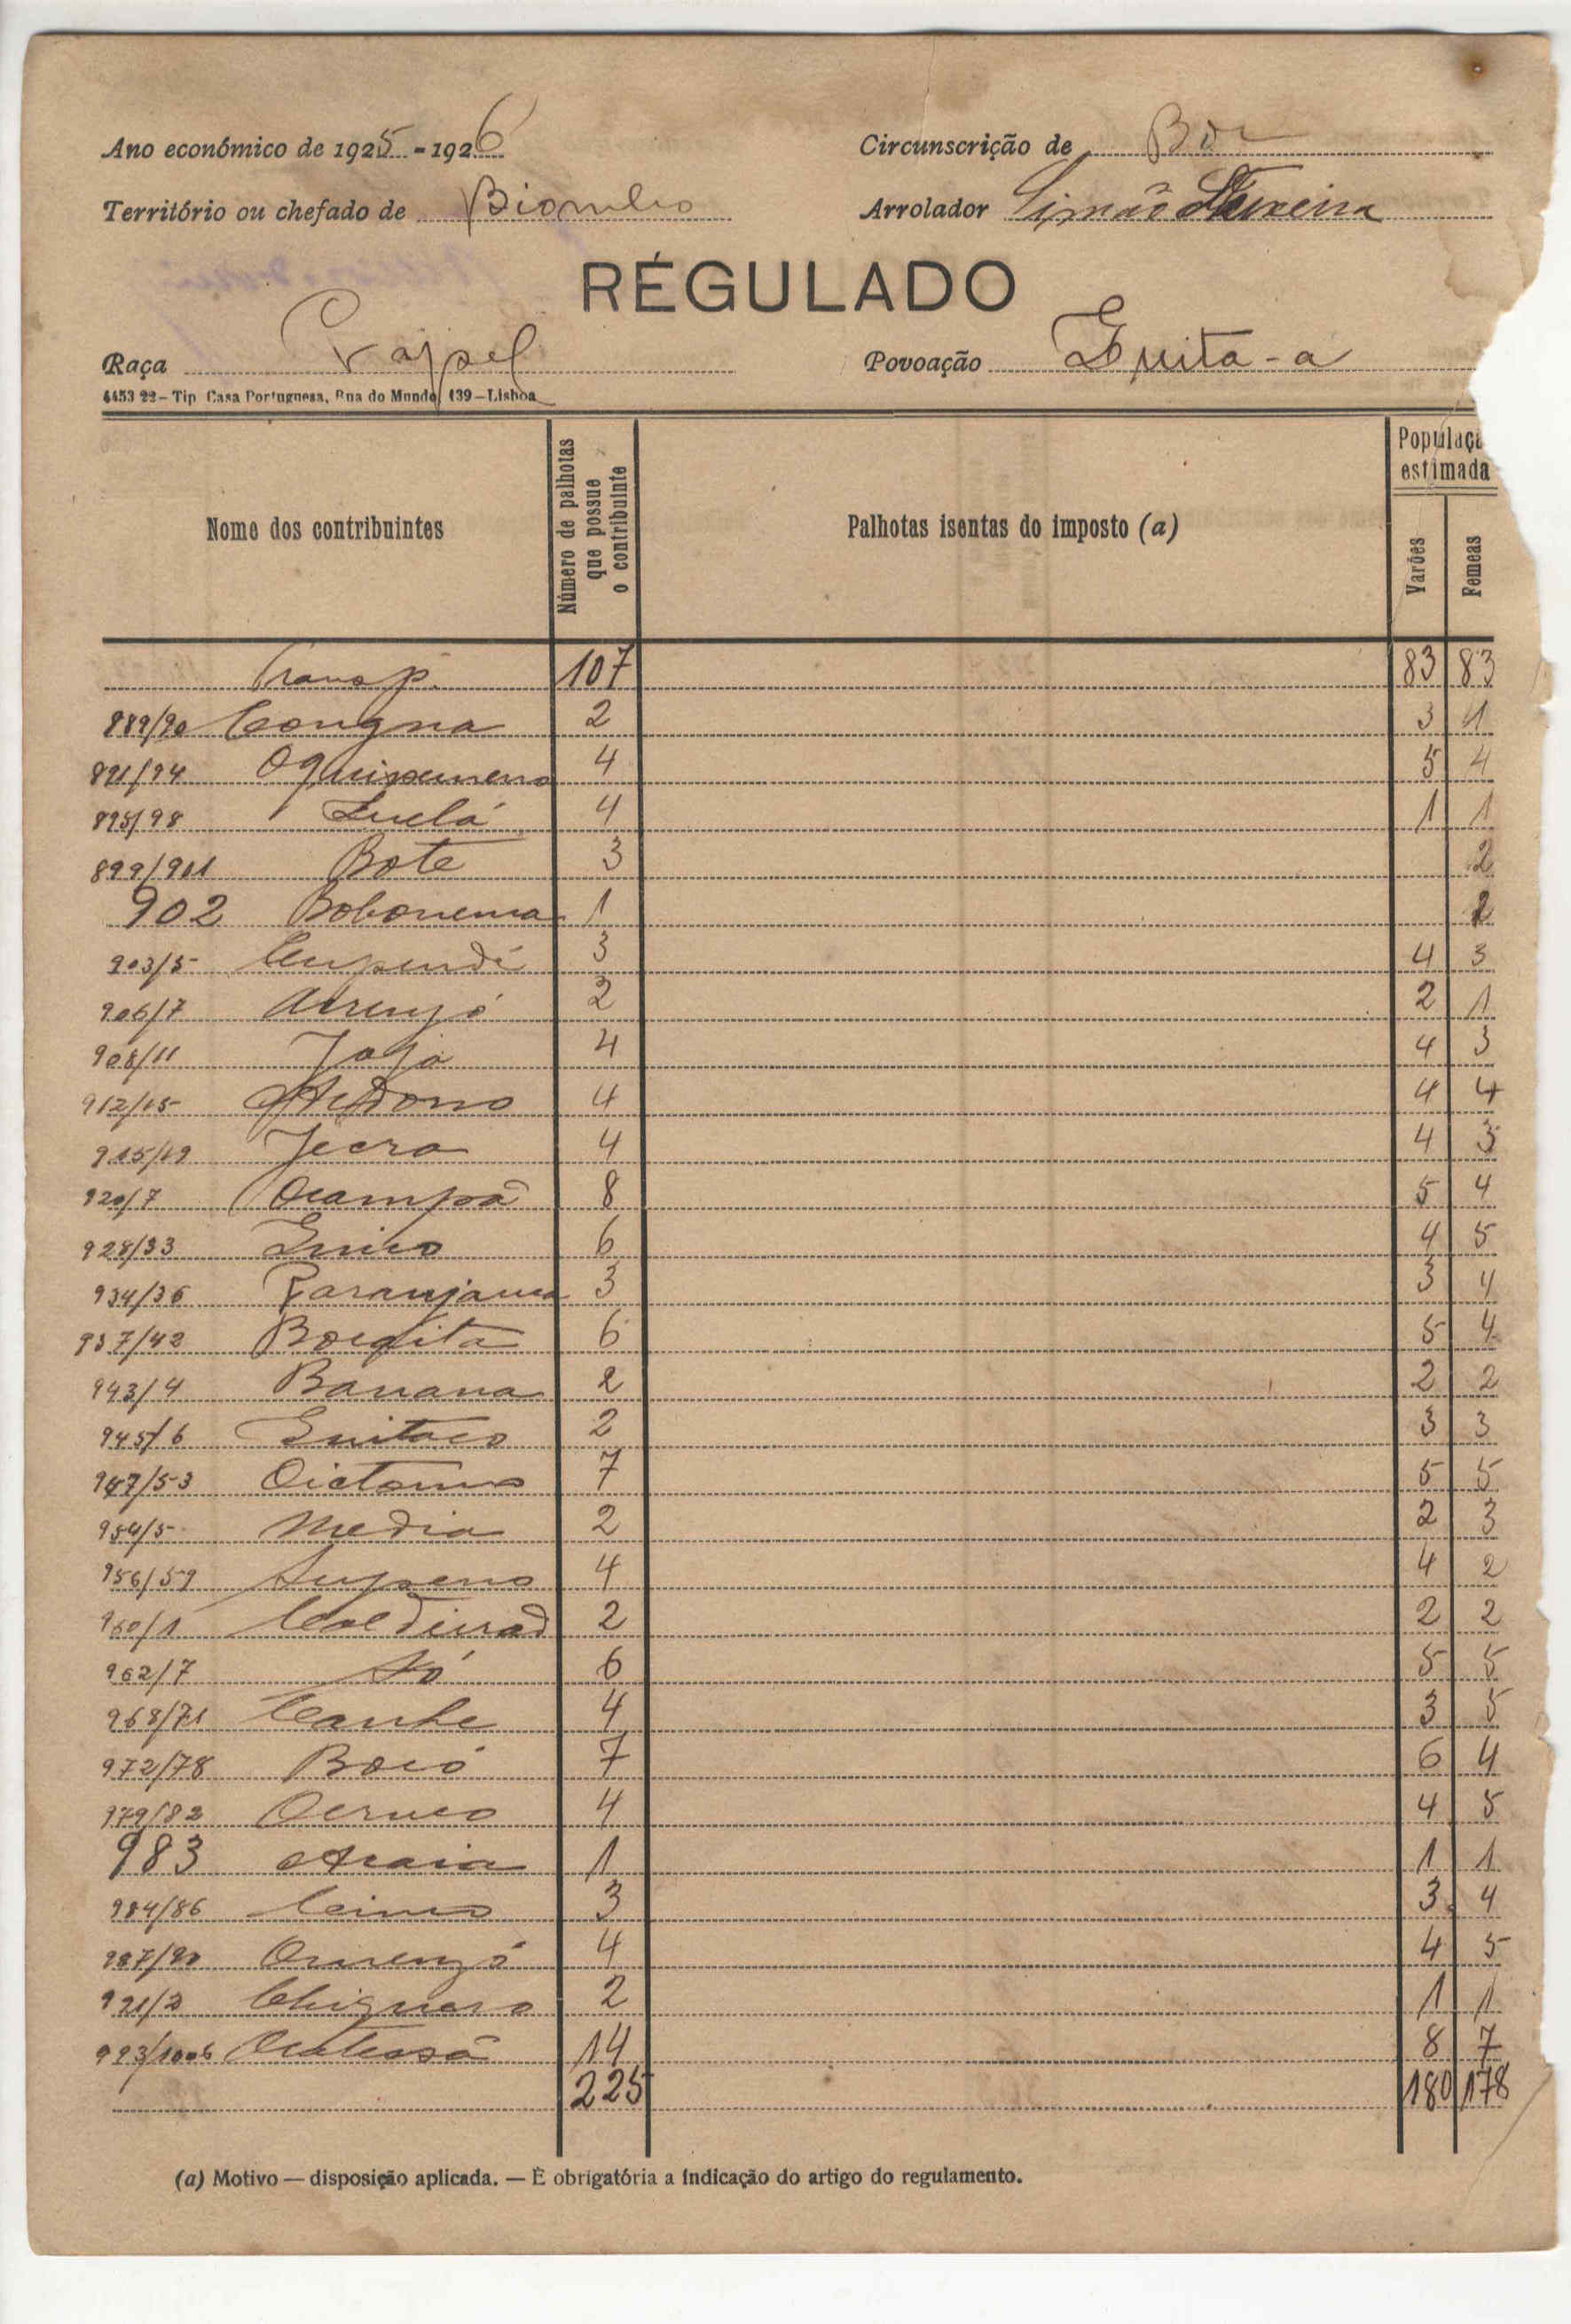 Ano económico de 1925-1926 Circunscrição de Bor
Território ou chefado de Biombo Arrolador Simão Teixeira
RÉGULADO
Raça Papel Povoação Quita-a
4453 22 - Tip Casa Portuguesa, Rua do Mundo, 139 - Lisboa
Nome dos contribuintes
Número de palhotas que possue o contribuinte
Palhotas isentas do imposto (a)
Populaçã estimada
Varões
Femeas
Transp. 107 83 83
889/90 Congna 2 3 1
891/94 4 5 4
895/98 4 1 1
899/901 Bote 3 2
902 Bobonema 1 2
903/5 Cupendi 3 4 3
906/7 2 2 1
908/11 Jojo 4 4 3
912/15 4 4 4
915/19 Jecra 4 4 3
920/7 Ocampã 8 5 4
928/33 6 4 5
934/36 3 3 4
937/42 6 5 4
943/4 Banana 2 2 2
945/6 2 3 3
947/53 7 5 5
954/5 Media 2 2 3
956/59 4 4 2
960/1 2 2 2
962/7 6 5 5
968/71 Canhe 4 3 5
972/78 Bocó 7 6 4
979/82 4 4 5
983 1 1 1
984/86 3 3 4
987/90 4 4 5
991/2 2 1 1
993/1006 14 8 7
225 180 178
(a) Motivo — disposição aplicada. — É obrigatória a indicação do artigo do regulamento.